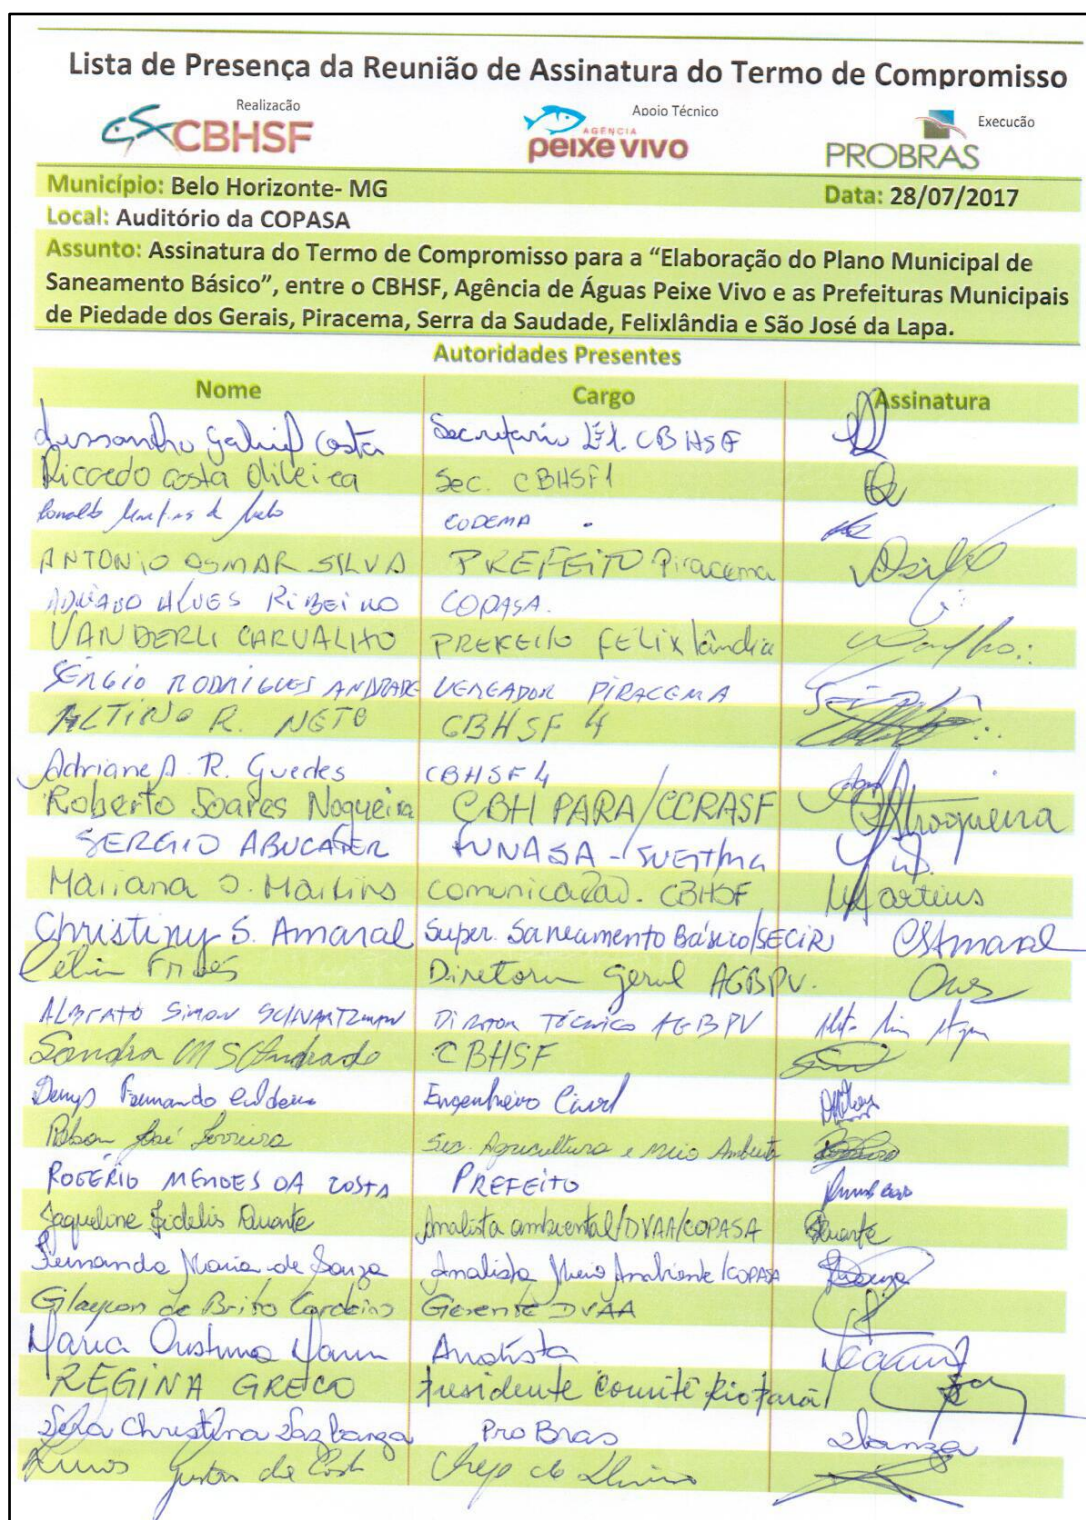 Lista de Presença da Reunião de Assinatura do Termo de Compromisso
Realização Apoio Técnico Execução
CBHSF AGÊNCIA peixe vivo PROBRAS
Município: Belo Horizonte- MG Data: 28/07/2017
Local: Auditório da COPASA
Assunto: Assinatura do Termo de Compromisso para a “Elaboração do Plano Municipal de
Saneamento Básico”, entre o CBHSF, Agência de Águas Peixe Vivo e as Prefeituras Municipais
de Piedade dos Gerais, Piracema, Serra da Saudade, Felixlândia e São José da Lapa.
Autoridades Presentes
Nome Cargo Assinatura
Costa Secretário CBHSF
Ricardo Costa Oliveira Sec. CBHSF1
CODEMA
ANTONIO OSMAR SILVA PREFEITO Piracema
ALVES RIBEIRO COPASA.
VANDERLI CARVALHO PREFEITO FELIXlândia
SÉRGIO RODRIGUES ANDRADE VEREADOR PIRACEMA
ALTINO R. NETO CBHSF 4
R. Guedes CBHSF 4
Roberto Soares Nogueira CBH PARA/CCRASF
SERGIO FUNASA -
Mariana S. Martins comunicação. CBHSF Martins
Christiny S. Amaral Super. Saneamento Básico/SECIR CSAmaral
Célia Fróes Diretora Geral AGBPV.
ALBERTO SIMON SCHVARTZMAN DIRETOR TÉCNICO AGBPV
Sandra CBHSF
Fernando Engenheiro Civil
José Sec. Agricultura e Meio Ambiente
ROGÉRIO MENDES DA COSTA PREFEITO
Jaqueline Fidelis Duarte Analista ambiental/DVAA/COPASA Duarte
Fernanda Maria de Souza Analista Meio Ambiente/COPASA Souza
de Brito Cordeiro Gerente DVAA
Maria Analista
REGINA GRECO Presidente Comitê Rio Pará
Christina Pro Bras
de